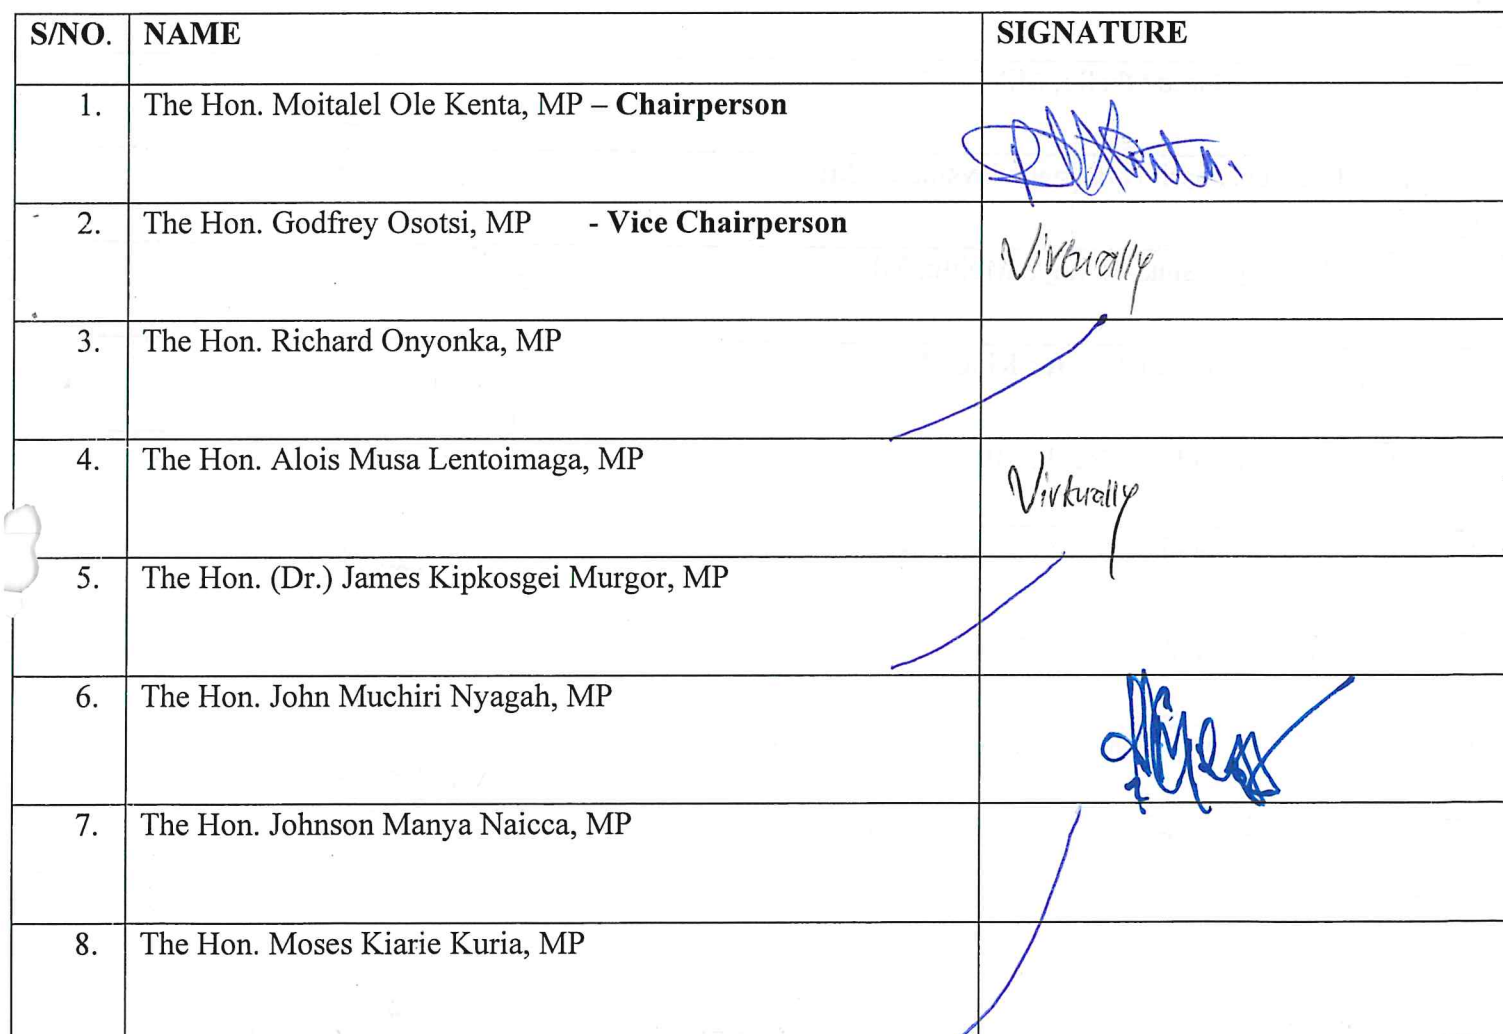 S/NO. NAME SIGNATURE
1. The Hon. Moitalel Ole Kenta, MP – Chairperson
2. The Hon. Godfrey Osotsi, MP - Vice Chairperson Virtually
3. The Hon. Richard Onyonka, MP
4. The Hon. Alois Musa Lentoimaga, MP Virtually
5. The Hon. (Dr.) James Kipkosgei Murgor, MP
6. The Hon. John Muchiri Nyagah, MP
7. The Hon. Johnson Manya Naicca, MP
8. The Hon. Moses Kiarie Kuria, MP